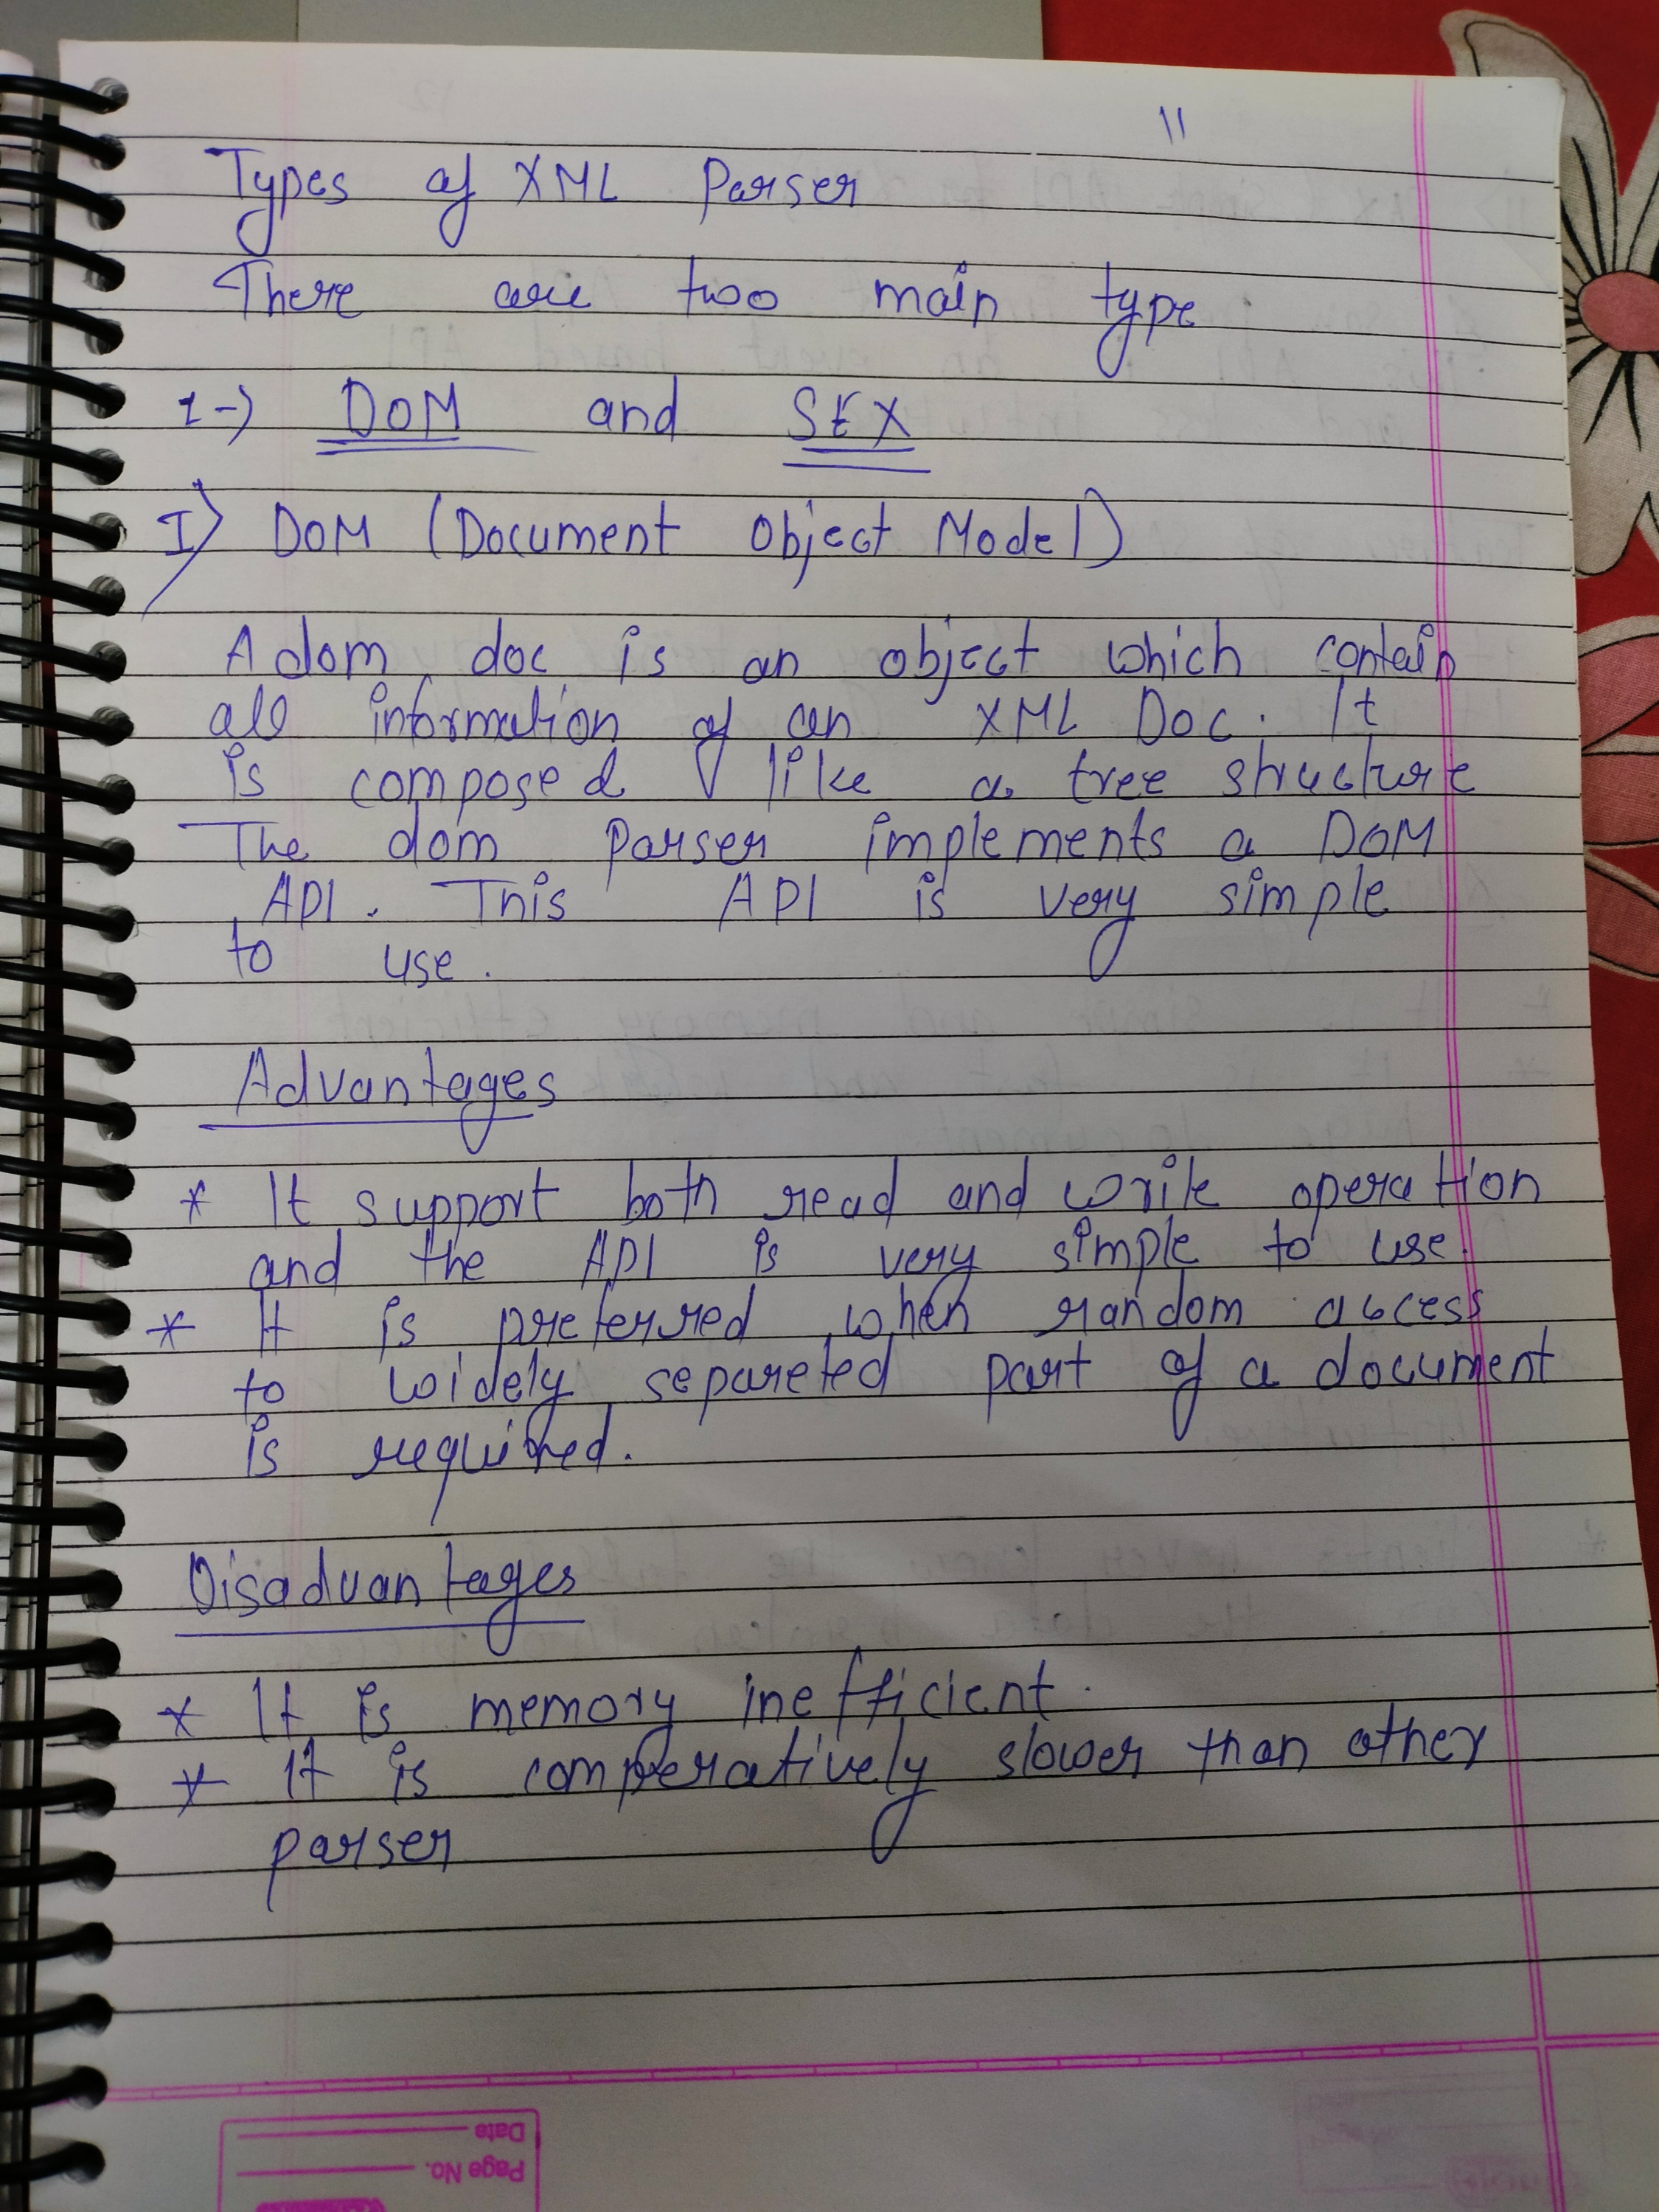 11
Types of XML Parser
There are two main type
1-) DOM and SEX
I) DOM (Document Object Model)
A dom doc is an object which contain
all information of an XML Doc. It
is composed like a tree structure
The dom Parser implements a DOM
API. This API is very simple
to use.
Advantages
* It support both read and write operation
and the API is very simple to use.
* It is preferred when random access
to widely separeted part of a document
is required.
Disadvantages
* It is memory inefficient.
* It is comperatively slower than other
parser
Date
Page No.